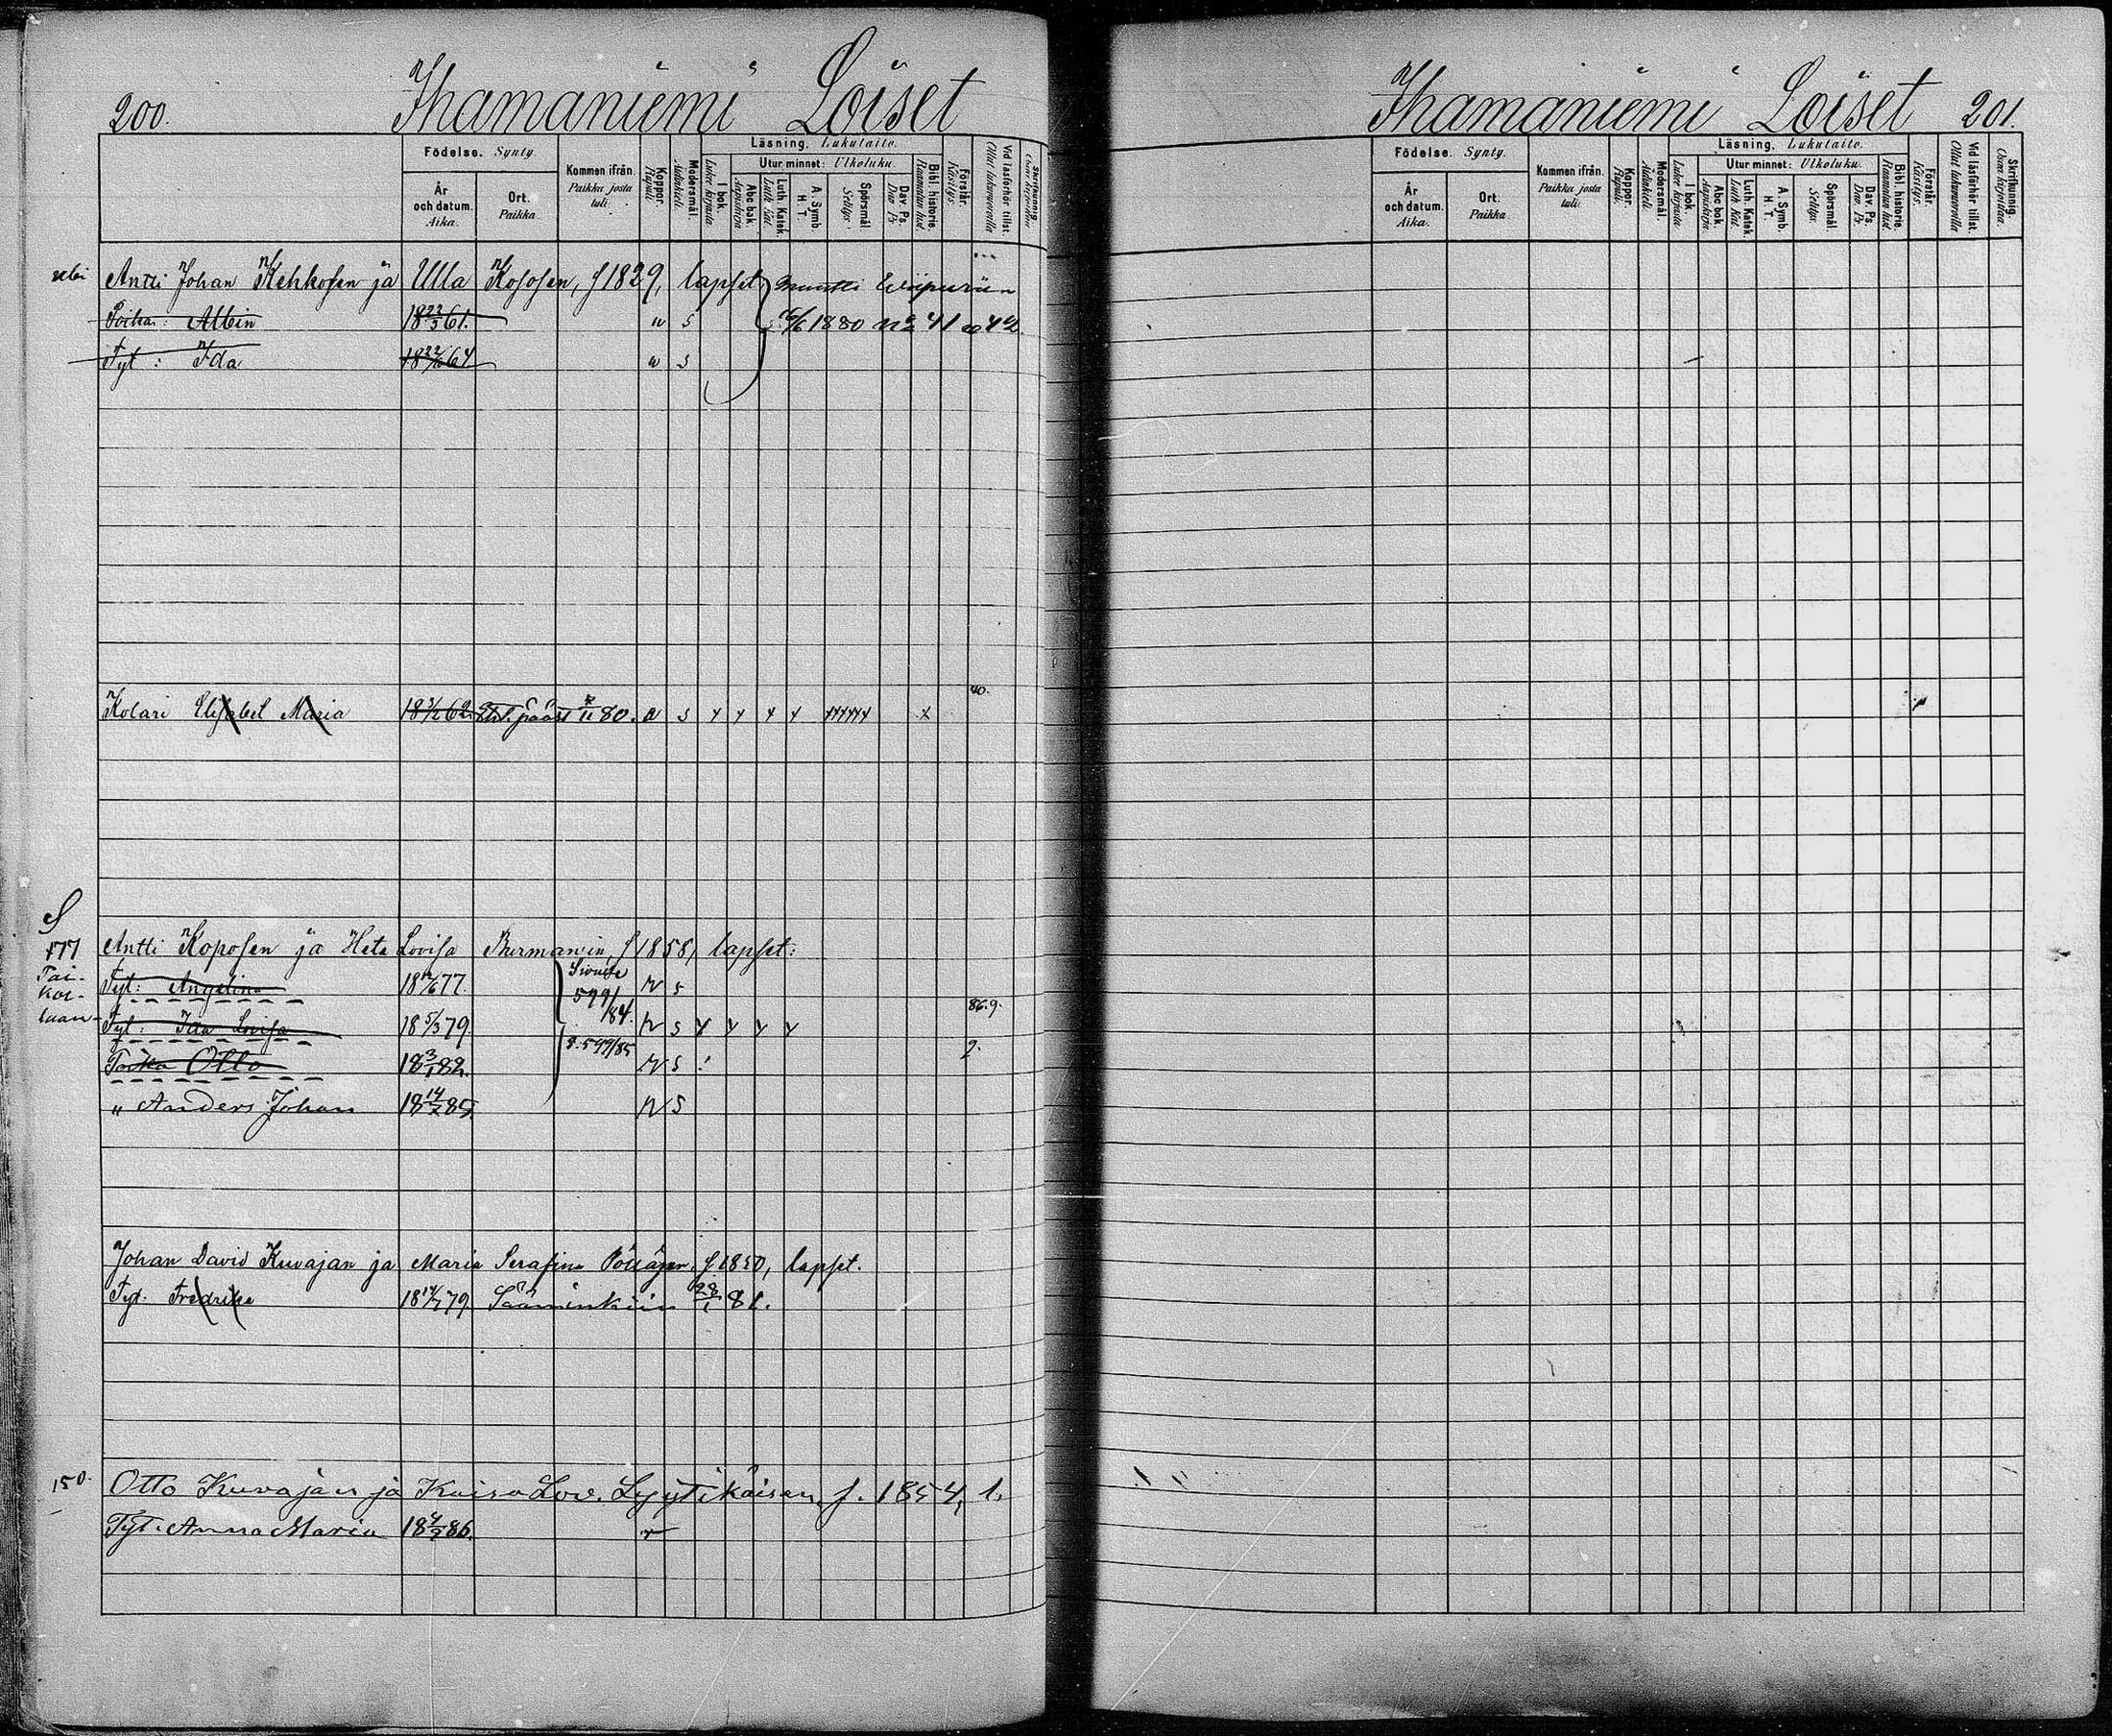 200. Ihamaniemi Loiset
Födelse. Synty.
År och datum. Aika.
Ort. Paikka
Kommen ifrån. Paikka josta tuli.
Koppor. Rupuli
Modersmål. Äidinkieli.
Läsning. Lukutaito.
I bok. Lukee kirjasta
Utur minnet: Ulkoluku.
Abc bok. Aapiskirja
Luth. Katek. Luth. Kat.
A. Symb. H. T.
Spörsmål Selitys.
Dav. Ps. Dav. Ps.
Bibl. historie. Raamatun hist.
Förstår. Käsitys.
Vid läsförhör tillst. Ollut lukuvuorolla
Skrifkunnig. Osaa kirjoittaa
Antti Johan Kehkosen ja Ulla Kososen, f 1829, lapset
muutti Wiipuriin
Poika: Albin 18 23/3 61. w s 1880 No 41
Tyt: Ida w s
40.
Kolari Elisabet Maria 62 pääst 80. a s
177
Antti Koposen ja Heta Lovisa Burmanin, f 1858, lapset:
Tyt: Angelina 77. Sivulta 599/84. r s
86.9.
Tyt: Ida Lovisa 18 5/3 79. r s
9.
Poika Otto 18 3/1 82. s. 599/85 r s
" Anders Johan 85. r s
Johan David Kuvajan ja Maria Serafina f 1850, lapset.
Tyt: Fredrika 79. Sääminkiin 81.
150.
Otto Kuvajan ja Kaisa Lov. Lyytikäisen, f. 1854, l.
Tyt: Anna Maria 86. r
Ihamaniemi Loiset 201.
Födelse. Synty.
År och datum. Aika.
Ort. Paikka.
Kommen ifrån. Paikka josta tuli:
Koppor. Rupuli.
Modersmål. Äidinkieli.
Läsning. Lukutaito.
I bok. Lukee kirjasta
Utur minnet: Ulkoluku.
Abc bok. Aapiskirja.
Luth. Katek. Luth. Kat.
A. Symb. H. T.
Spörsmål Selitys.
Dav. Ps. Dav. Ps.
Bibl. historie. Raamatun hist.
Förstår. Käsitys.
Vid läsförhör tillst. Ollut lukuvuorolla
Skrifkunnig. Osaa kirjoittaa.